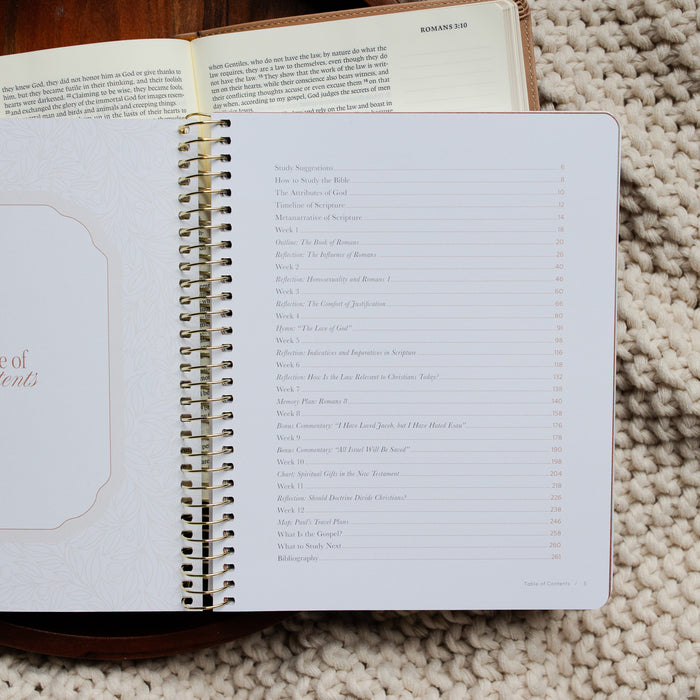 ROMANS 3:10
they knew God, they did not honor him as God or give thanks to
him, but they became futile in their thinking, and their foolish
hearts were darkened. 22 Claiming to be wise, they became fools,
23 and exchanged the glory of the immortal God for images resem-
mortal man and birds and animals and creeping things.
up in the lusts of their hearts to
when Gentiles, who do not have the law, by nature do what the
law requires, they are a law to themselves, even though they do
not have the law. 15 They show that the work of the law is writ-
ten on their hearts, while their conscience also bears witness, and
their conflicting thoughts accuse or even excuse them 16 on that
day when, according to my gospel, God judges the secrets of men
and rely on the law and boast in
e of
tents
Study Suggestions 6
How to Study the Bible 8
The Attributes of God 10
Timeline of Scripture 12
Metanarrative of Scripture 14
Week 1 18
Outline: The Book of Romans 20
Reflection: The Influence of Romans 26
Week 2 40
Reflection: Homosexuality and Romans 1 46
Week 3 60
Reflection: The Comfort of Justification 66
Week 4 80
Hymn: “The Love of God” 91
Week 5 98
Reflection: Indicatives and Imperatives in Scripture 116
Week 6 118
Reflection: How Is the Law Relevant to Christians Today? 132
Week 7 138
Memory Plan: Romans 8 140
Week 8 158
Bonus Commentary: “I Have Loved Jacob, but I Have Hated Esau” 176
Week 9 178
Bonus Commentary: “All Israel Will Be Saved” 190
Week 10 198
Chart: Spiritual Gifts in the New Testament 204
Week 11 218
Reflection: Should Doctrine Divide Christians? 226
Week 12 238
Map: Paul's Travel Plans 246
What Is the Gospel? 258
What to Study Next 260
Bibliography 261
Table of Contents / 5